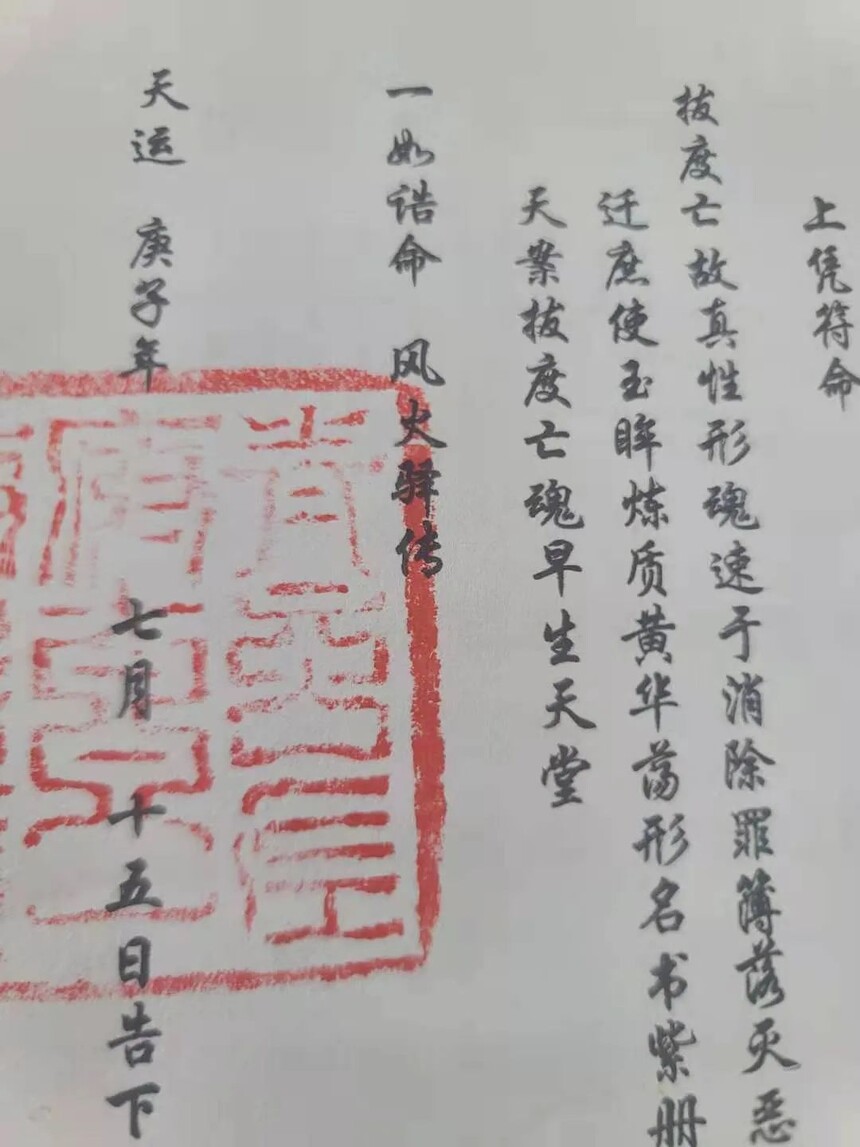 上凭符命
拔度亡故真性形魂速于消除罪簿落灭恶
迁庶使玉眸炼质黄华荡形名书紫册
天案拔度亡魂早生天堂
一如诰命 风火驿传
天运 庚子年 七月 十五日告下